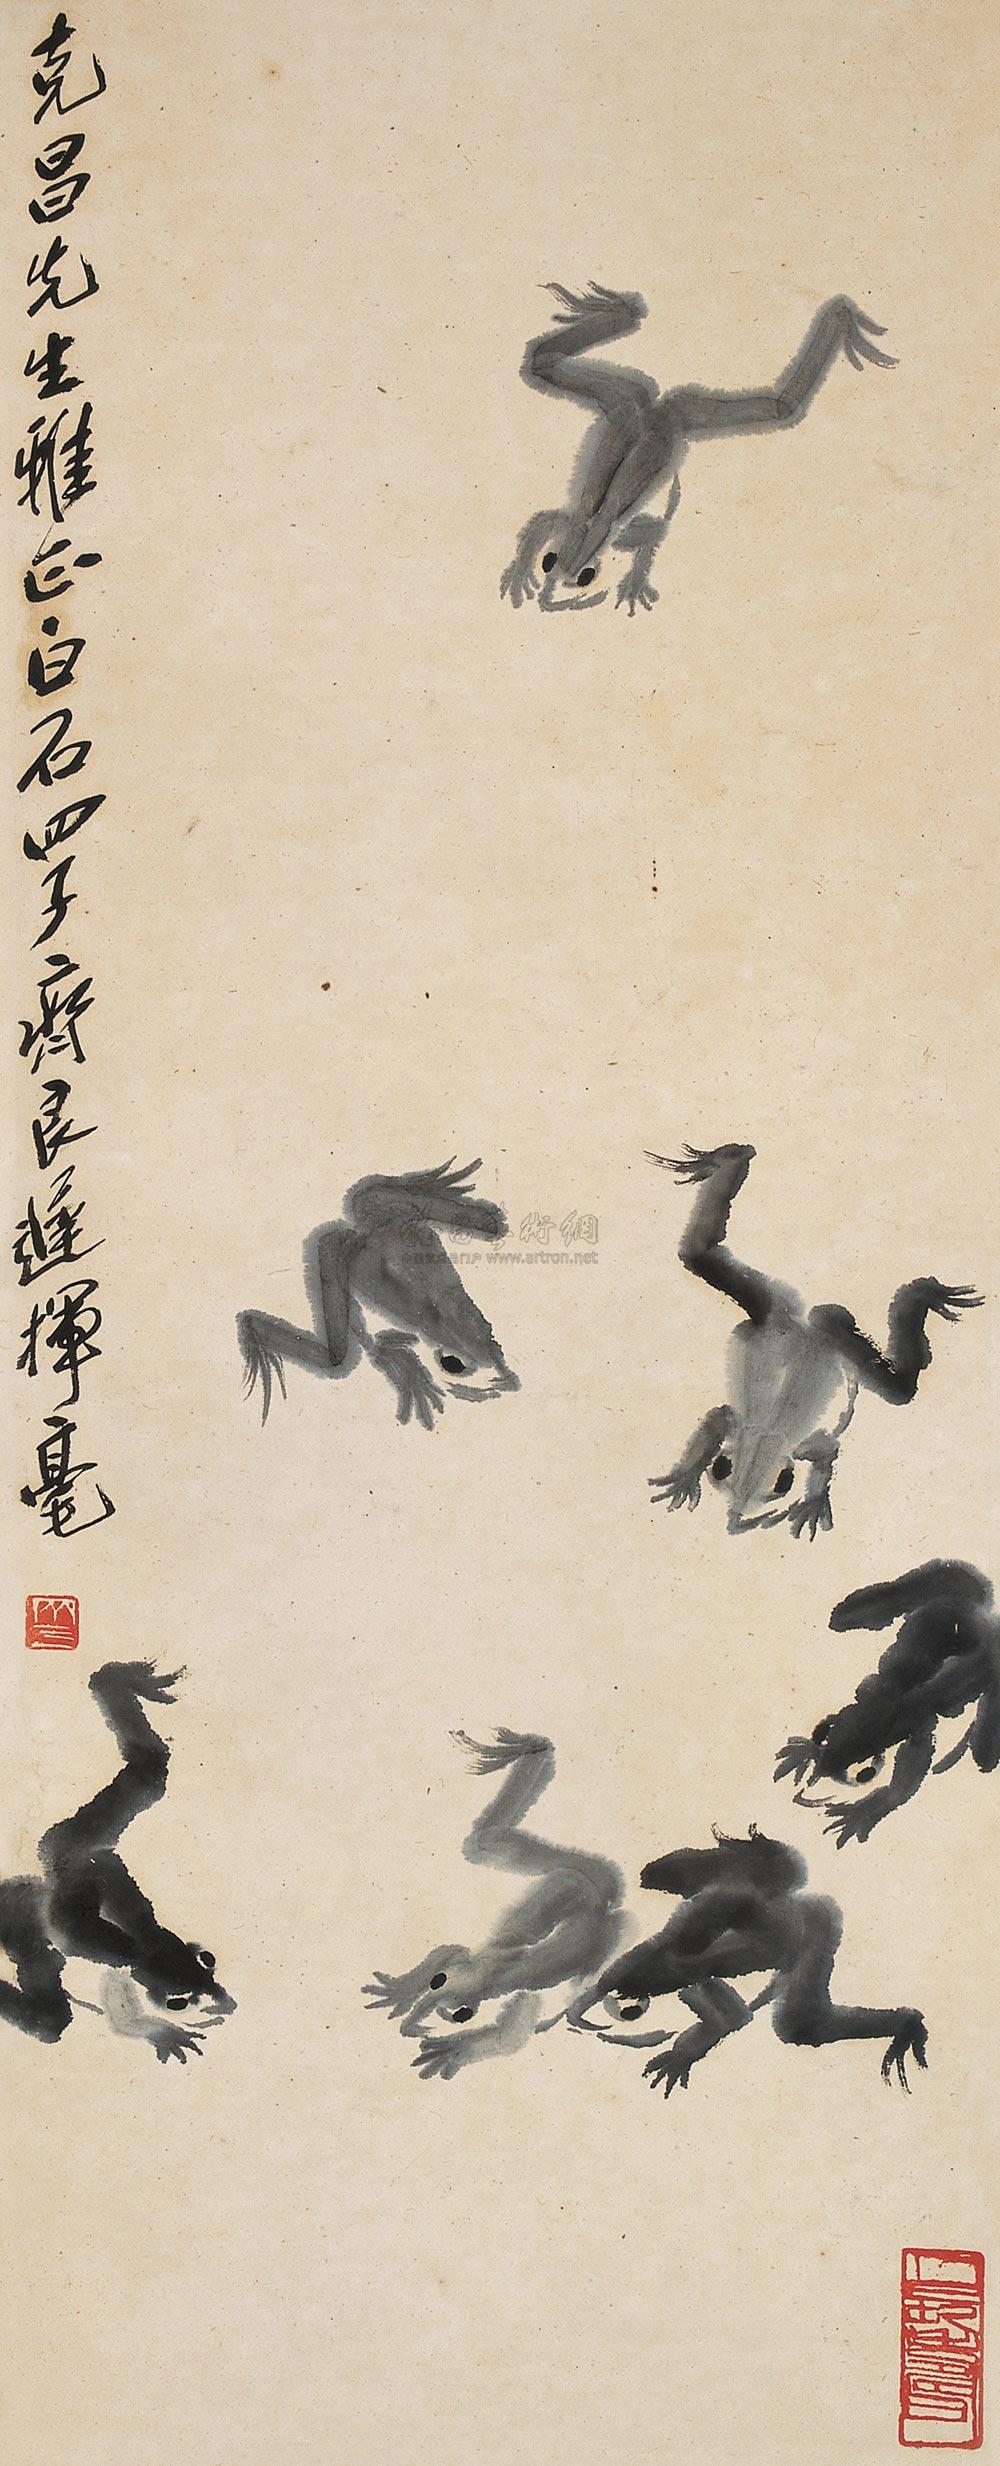 克昌先生雅正白石四子齊良遲揮毫
術網
www.artron.net